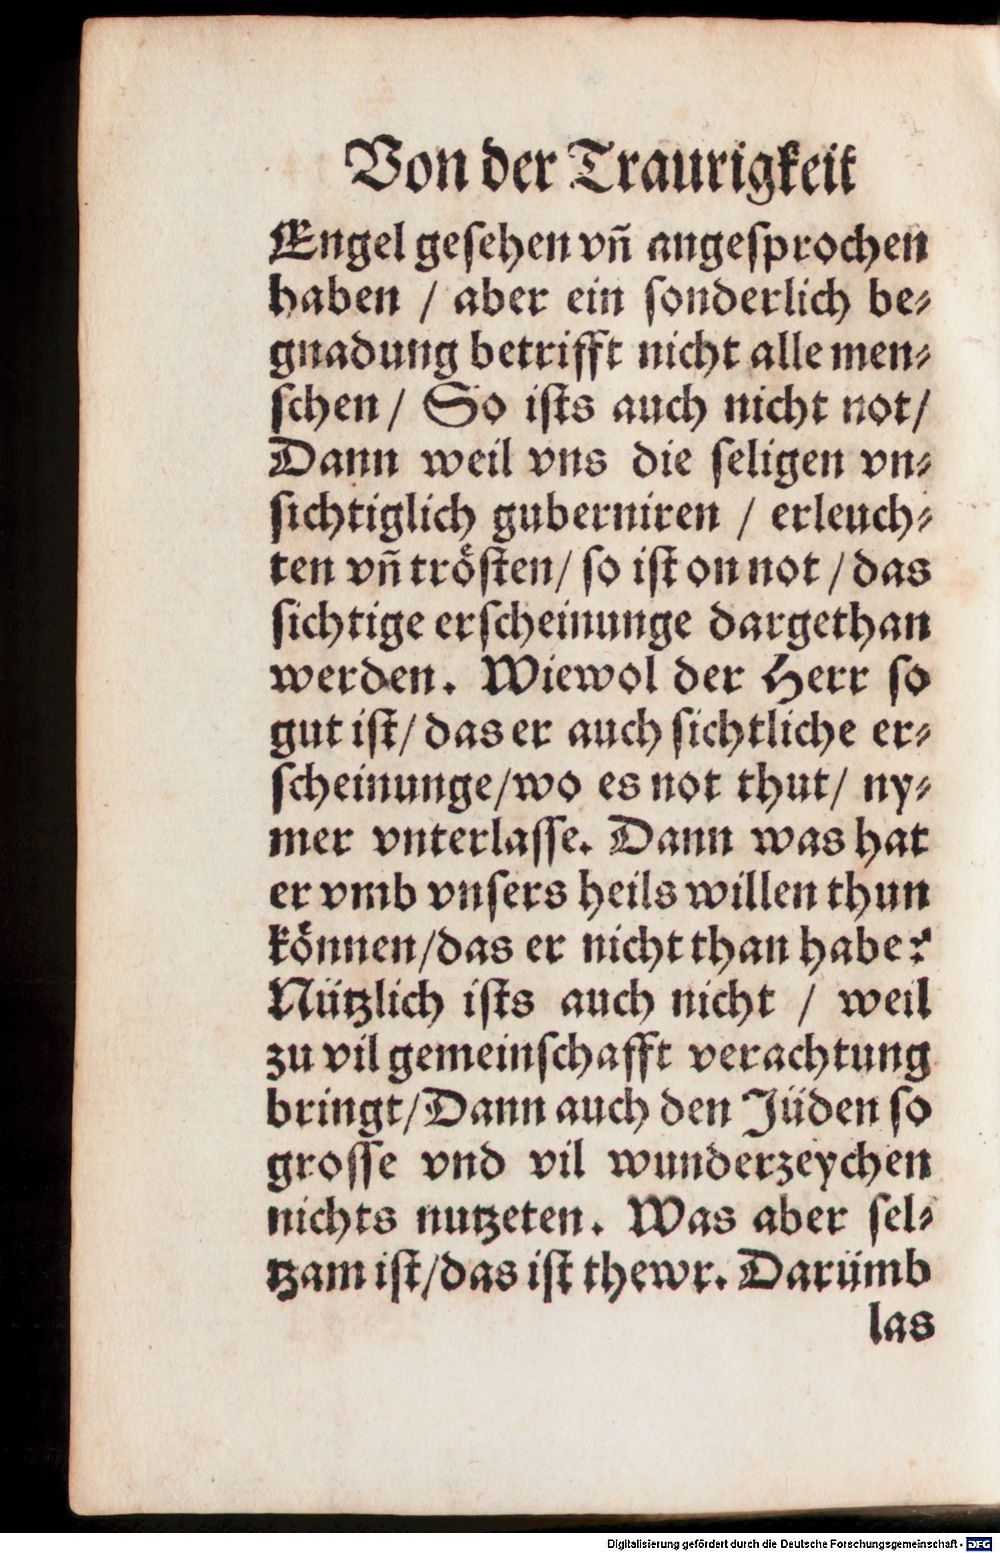 Von der Traurigkeit
Engel geſehen vñ angeſprochen
haben / aber ein ſonderlich be⸗
gnadung betrifft nicht alle men⸗
ſchen / So iſts auch nicht not /
Dann weil vns die ſeligen vn⸗
ſichtiglich guberniren / erleuch⸗
ten vñ tröſten / ſo iſt on not / das
ſichtige erſcheinunge dargethan
werden. Wiewol der Herr ſo
gut iſt / das er auch ſichtliche er⸗
ſcheinunge / wo es not thut / ny⸗
mer vnterlaſſe. Dann was hat
er vmb vnſers heils willen thun
können / das er nicht than habe?
Nützlich iſts auch nicht / weil
zu vil gemeinſchafft verachtung
bringt / Dann auch den Jüden ſo
groſſe vnd vil wunderzeychen
nichts nutzeten. Was aber ſel⸗
tzam iſt / das iſt thewr. Darümb
las
Digitalisierung gefördert durch die Deutsche Forschungsgemeinschaft - DFG